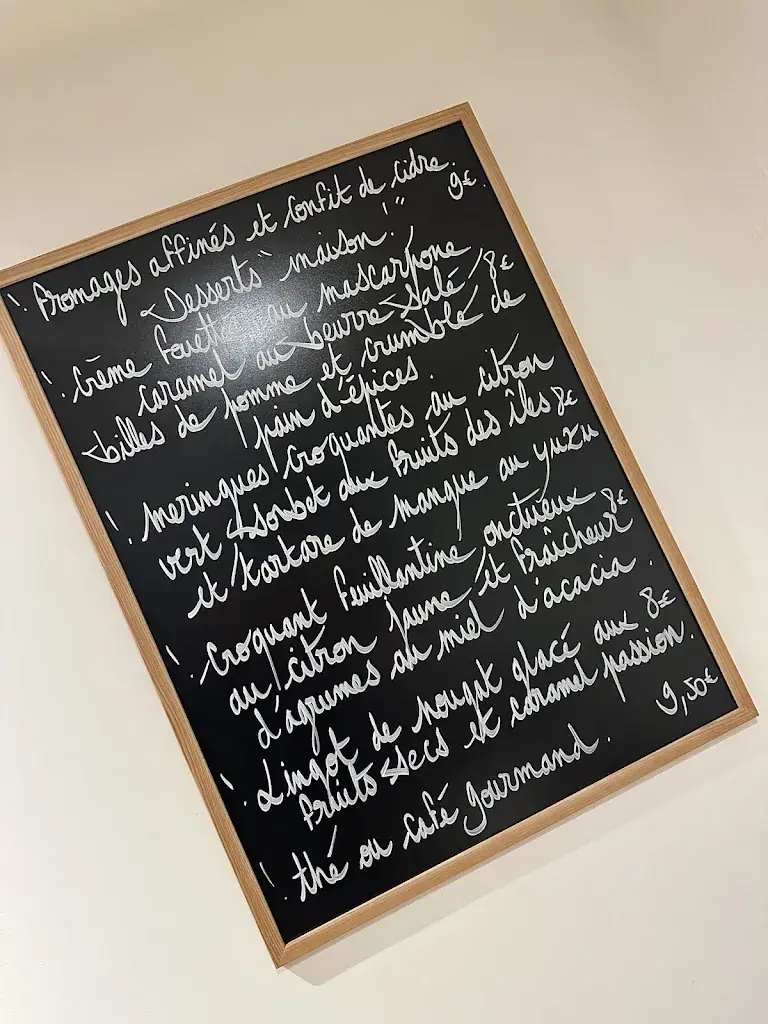 ! Fromages affinés et confit de cidre. 9€.
"Desserts" maison!"
! Crème fouettée au mascarpone,
caramel au beurre salé, 8€
billes de pomme et crumble de
pain d'épices.
! Meringues croquantes au citron
vert, sorbet aux fruits des îles 8€
et tartare de mangue au yuzu
! Croquant feuillantine onctueux 8€
au citron jaune et fraîcheur
d'agrumes au miel d'acacia.
! Lingot de nougat glacé aux 8€
fruits secs et caramel passion.
! thé ou café gourmand. 9,50€